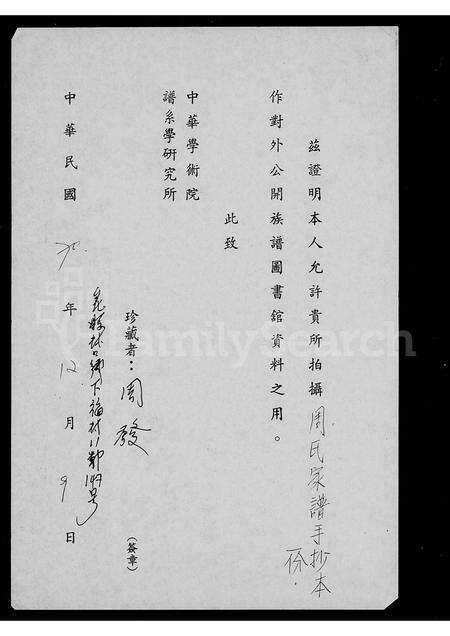 茲證明本人允許貴所拍攝周氏家譜手抄本份
作對外公開族譜圖書館資料之用。
此致
中華學術院
譜系學研究所
珍藏者：周發（簽章）
縣林口鄉下福村11鄰149号
中華民國 年12月9日
FamilySearch